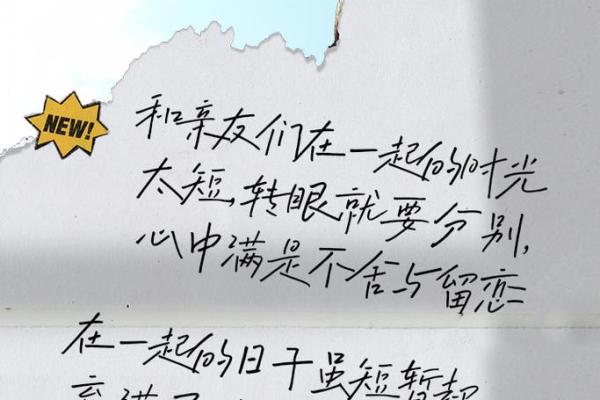 NEW!
和亲友们在一起的时光
太短,转眼就要分别,
心中满是不舍与留恋
在一起的日子虽短暂却
充满了